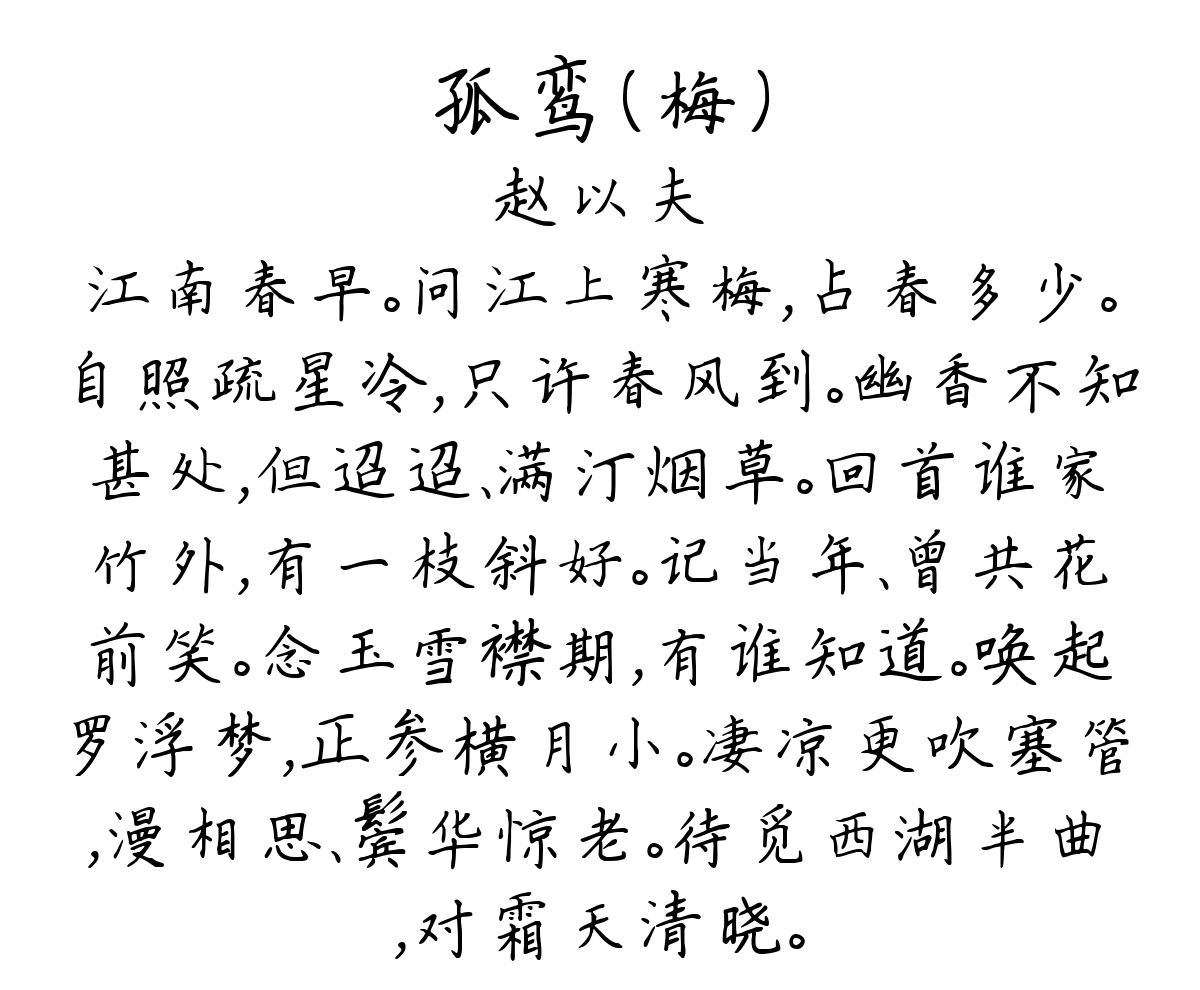 孤鸾(梅)
赵以夫
江南春早。问江上寒梅,占春多少。
自照疏星冷,只许春风到。幽香不知
甚处,但迢迢、满汀烟草。回首谁家
竹外,有一枝斜好。记当年、曾共花
前笑。念玉雪襟期,有谁知道。唤起
罗浮梦,正参横月小。凄凉更吹塞管
,漫相思、鬓华惊老。待觅西湖半曲
,对霜天清晓。